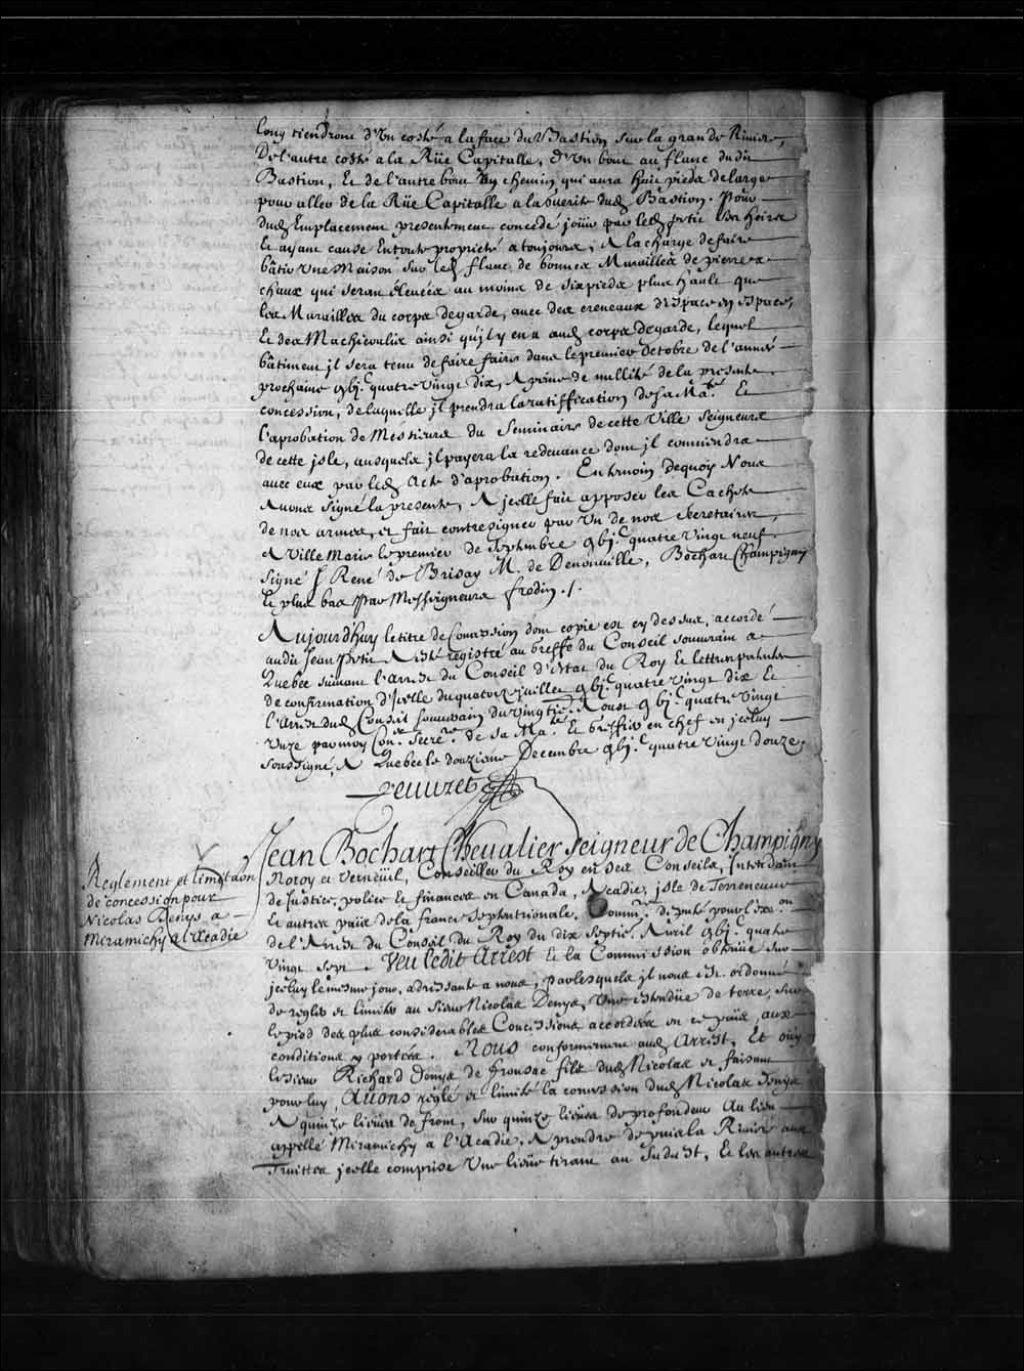 long tiendrons d'un costé a la face du Bastion sur la grande Riviere,
De l'autre costé a la Rüe Capitalle, d'un bout au flanc dudit
Bastion, Et de l'autre bout un chemin qui aura huit pieds de large
pour aller de la Rüe Capitalle a la guerite dud. Bastion. Pour
dud. Emplacement presentement concedé joüir par led. petit ses hoirs
Et ayant cause En toute proprieté a toujours, A la charge de faire
bâtir une Maison sur led. flanc de bonnes Murailles de pierre a
chaux qui seront élevées au moins de six pieds plus hault que
les Murailles du corps degarde, avec des creneaux d'Espace en espace,
Et des Machicoulix ainsi qu'il y en a aud. corps degarde, lequel
bâtiment il sera tenu de faire faire dans le premier octobre de l'année
prochaine 9bj.c quatre vingt dix, A peine de nullité de la presente
concession, de laquelle il prendra la ratiffication de Sa Ma.té Et
l'aprobation de Messieurs du Seminaire de cette Ville Seigneurs
de cette jsle, ausquels il payera la redevance dont il conviendra
avec eux par led. Acte d'aprobation. En temoin dequoy Nous
Avons signé la presente, A jcelle fait apposer les Cachets
de nos armes, et fait contresigner par Un de nos secretaires,
a Ville Marie le premier de Septembre 9bj.c quatre vingt neuf.
signé J René de Brisay M. de Denonville, Bochart Champigny
Et plus bas Par Messeigneurs fredin ./.
Aujourd'huy le titre de Concession dont copie est cy dessus, accordé
audit Jean Petit A esté registré au greffe du Conseil souverain a
Quebec suivant l'arrest du Conseil d'Estat du Roy Et lettres patentes
de confirmation d'Icelle du quatorze juillet 9bj.c quatre vingt dix Et
l'Arrest dud. Conseil souverain du vingtie. Aoust 9bj.c quatre vingt
Unze par moy Con.er Secre.re de sa Ma.té Et greffier en chef en jceluy
soussigné, A Quebec le douzieme Decembre 9bj.c quatre vingt douze.
Peuvret
Reglement et limitaon
de concession pour
Nicolas Denys a
Miramichy a l'Acadie
Jean Bochart Chevalier Seigneur de Champigny
Noroy et Verneüil, Conseiller du Roy en ses Conseils, Intendant
de Justice, police Et finances en Canada, Acadie, jsle de Terreneuve
Et autres païs dela france septentrionale, Commre. député pour l'Ex.on
de l'Arrest du Conseil du Roy du dix septie. Avril 9bj.c quatre
vingt sept. Veu ledit Arrest Et la Commission obtenüe sur
jceluy le mesme jour, adressante a nous, par lesquels jl nous est ordonné
de regler et limiter au sieur Nicolas Denys, une estendüe de terre, sur
le pied des plus considerables Concessions accordées en ce païs, aux
conditions y portées. Nous conformement aud. Arrest, Et oüy
le sieur Richard Denys de fronsac fils dud. Nicolas et faisant
pour luy, Avons reglé et limité la concession dud. Nicolas Denys
A quinze lieües de front, sur quinze lieües de profondeur Au lieu
appellé Miramichy a l'Acadie, A prendre depuis la Riviere aux
Truittes jcelle comprise Une lieüe tirant au Sudest, Et les autres